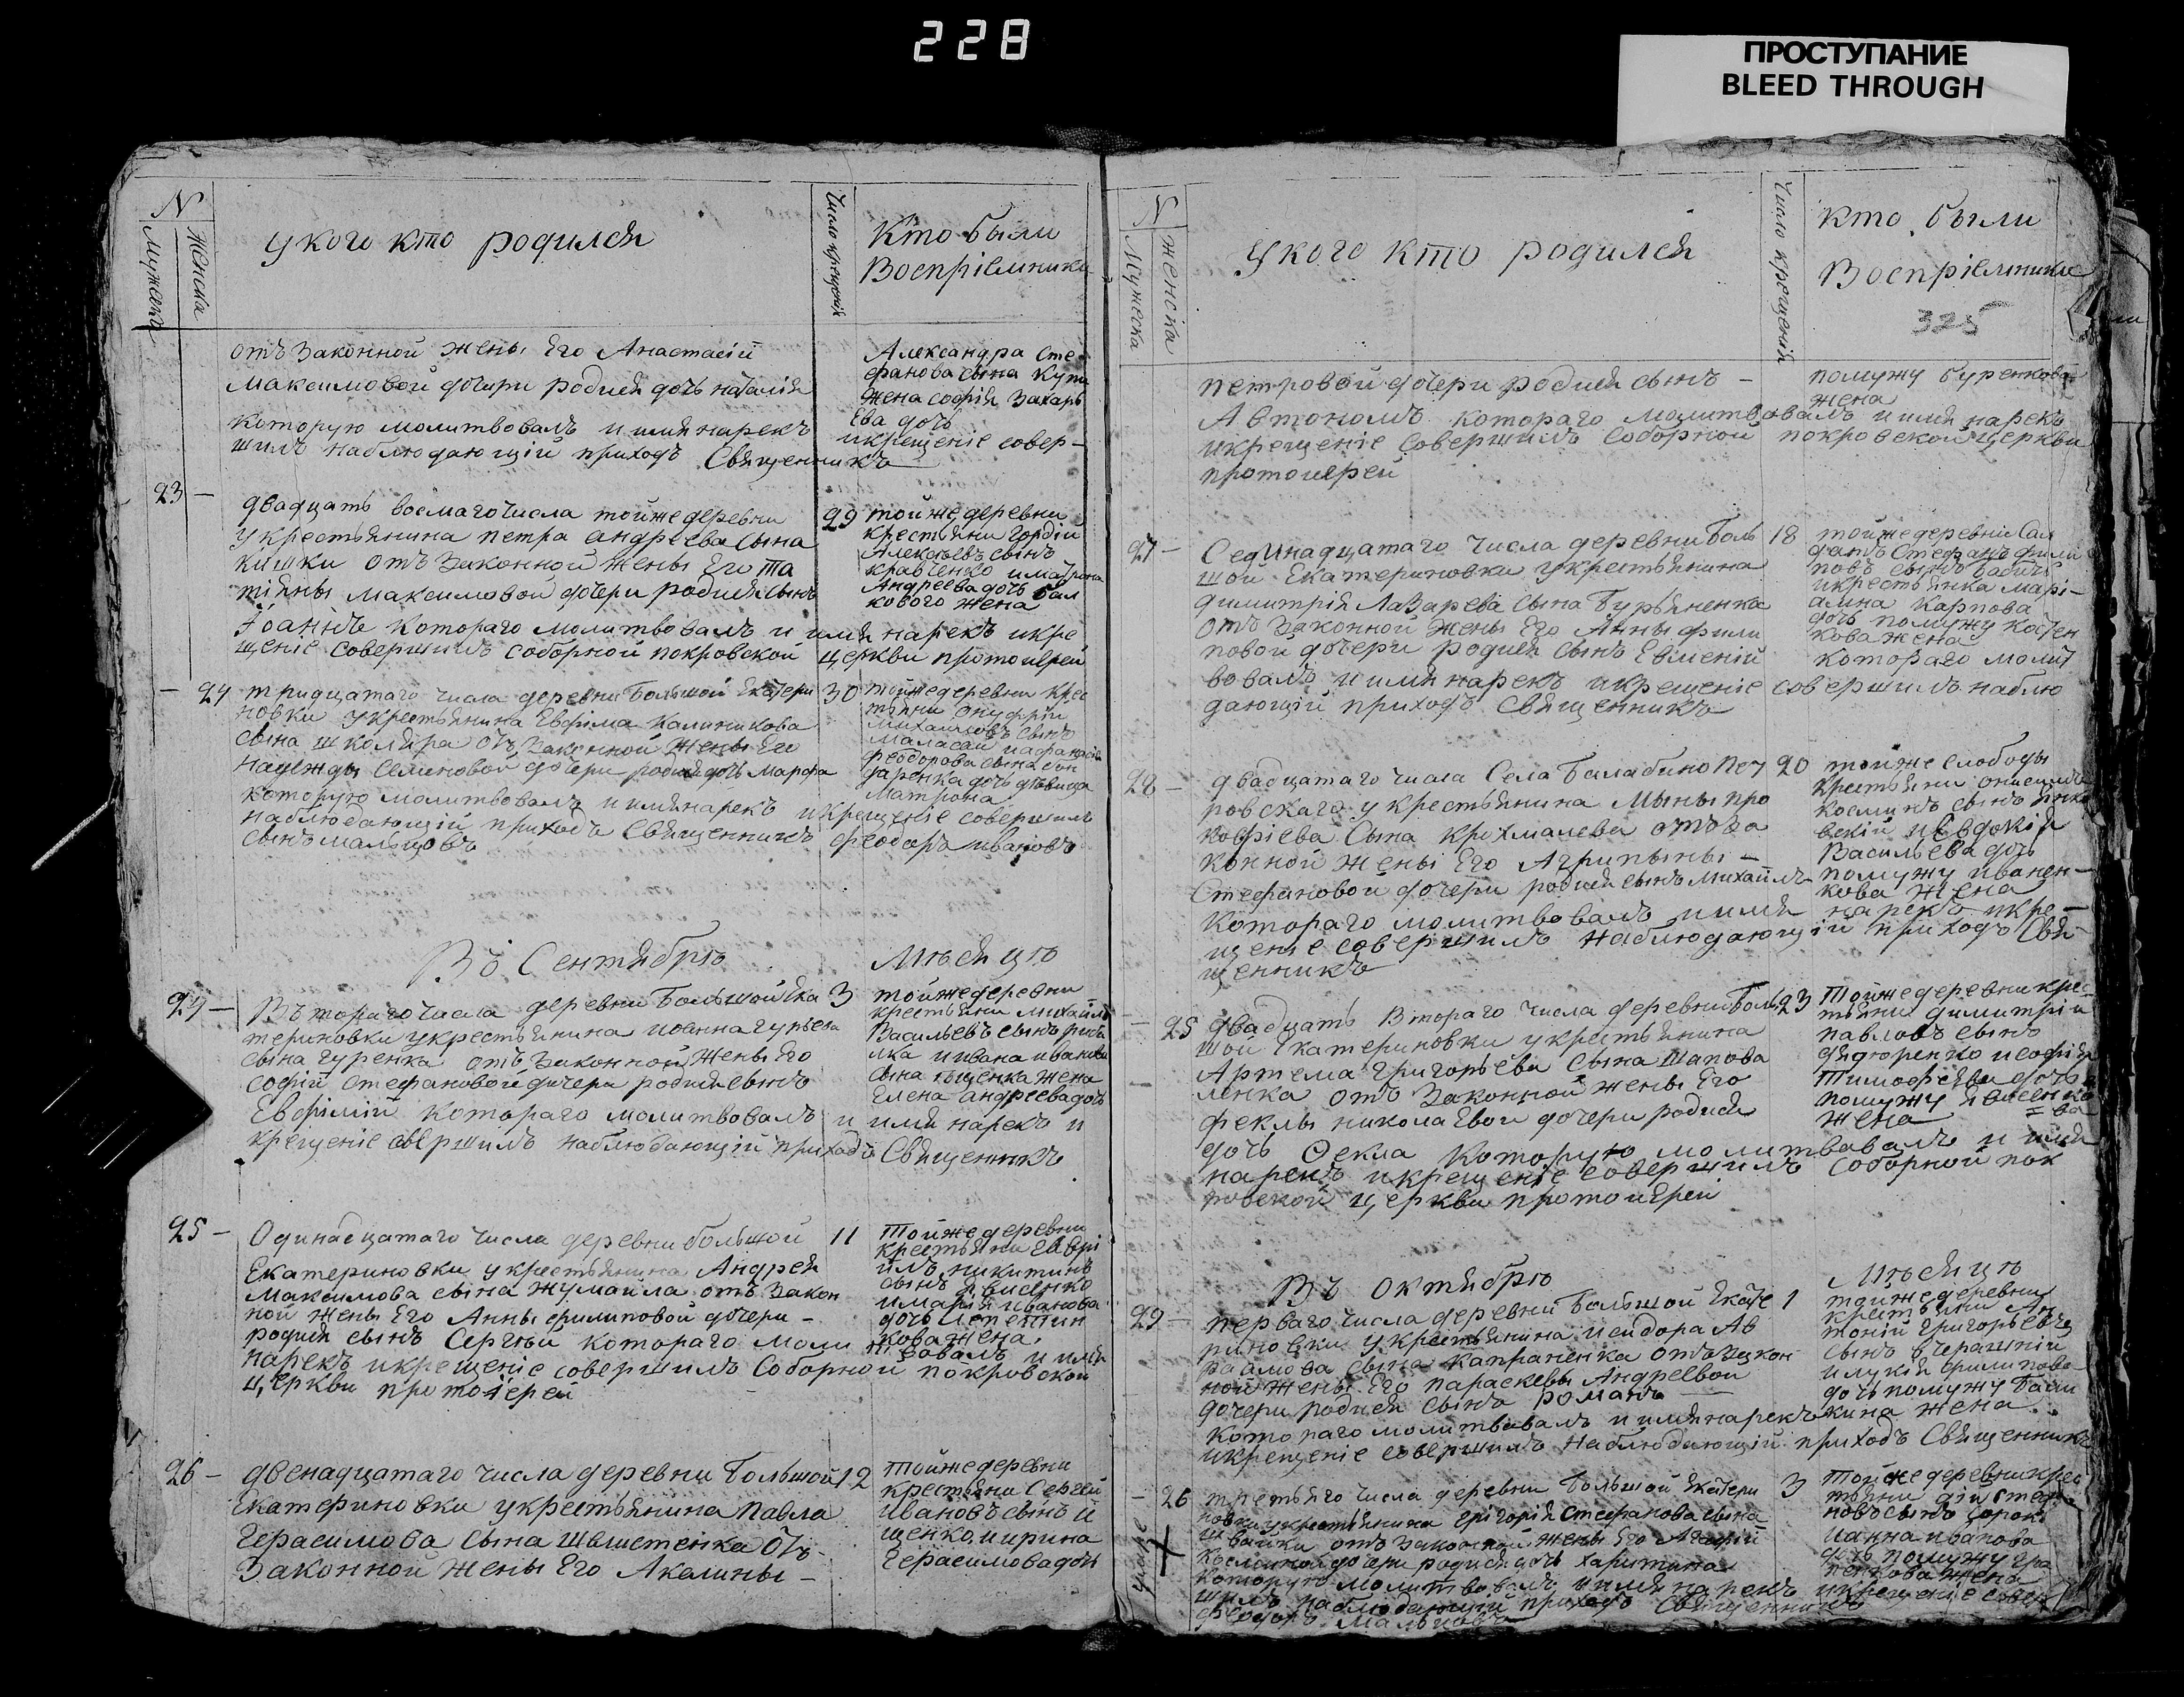 228
ПРОСТУПАНИЕ
BLEED THROUGH
N
Мужеска
Женска
у кого кто родился
Число крещенія
Кто были
Воспріемники
отъ законной жены Его Анастасіи
Максимовой дочери родися дочь наталія
которую молитвовалъ и имя нарекъ
икрещеніе совер-
шилъ наблюдающій приходъ Священникъ
Александра Сте
фанова сына
жена софія Захарь
Ева дочь
23 —
двадцать восмаго числа тойже деревни
укрестьянина петра андреева сына
кишки отъ законной жены Его та
тіяны максимовой дочери родися сынъ
Іоаннъ котораго молитвовалъ и имя нарекъ икре
щеніе совершилъ соборной покровской церкви протоиерей
29
тойже деревни
крестьяни гордій
Алексѣевъ сынъ
кравченко иматрона
Андреева дочь
кового жена
— 24
тридцатаго числа деревни Большой Екатери
новки укрестьянина Евфима калиникова
сына школяра отъ законной жены Его
надежды Семиновой дочери родися дочь Марфа
которую молитвовалъ и имя нарекъ икрещеніе совершилъ
наблюдающій приходъ Священникъ феодоръ ивановъ
сынъ мальцовъ
30
тойже деревни крес
тьяни онуфрій
михаиловъ сынъ
феодорова сына бон
даренка дочь дѣвица
Матрона
Въ Сентябрѣ Мѣсяцѣ
24 —
Втораго числа деревни Большой Ека
териновки укрестьянина иоанна гурьева
сына гуренка отъ законной жены Его
софіи стефановой дочери родися сынъ
Евфимій котораго молитвовалъ и имя нарекъ и
крещеніе совершилъ наблюдающій приходъ Священникъ
3
тойже деревни
крестьяни михаилъ
Васильевъ сынъ
ивана иванова
сына жена
Елена андреева дочь
25 —
Одинадцатаго числа деревни большой
Екатериновки укрестьянина Андрея
максимова сына Жумайла отъ закон
ной жены Его Анны филиповой дочери -
родися сынъ Сергѣй котораго молитвовалъ и имя
нарекъ икрещеніе совершилъ Соборной покровской
церкви протоіерей
11
Тойже деревни
крестьяни
никитинъ
сынъ
имарія иванова
дочь
кова жена
26 —
двенадцатаго числа деревни Большой
Екатериновки укрестьянина Павла
Герасимова сына отъ-
законной жены Его Акелины -
12
Тойже деревни
крестьяни Сергей
Ивановъ сынъ и
щенко иирина
Герасимова дочь
N
Мужеска
женска
у кого кто родился
Число крещеній
кто были
Воспріемники
325
петровой дочери родися сынъ -
Автономъ котораго молитвовалъ и имя нарекъ
икрещеніе совершилъ соборной покровской церкви
протоиерей
помужу буренкова
жена
27 —
Седмнадцатаго числа деревни Боль
шой Екатериновки укрестьянина
димитрія Лазарева сына Бурьяненка
отъ законной жены Его Анны фили
повой дочери родися сынъ Евмѣній
котораго молит
вовалъ и имя нарекъ икрещеніе совершилъ наблю
дающій приходъ Священникъ
18
тойже деревни Сол
датъ Стефанъ фили
повъ сынъ бабичъ
икрестьянка Марі-
амна карпова
дочь помужу костен
кова жена
28 —
двадцатаго числа Села Балабино Пет
ровскаго укрестьянина Мины про
кофіева сына крохмалева отъ за
конной жены Его Агрипины -
Стефановой дочери родися сынъ Михаилъ
котораго молитвовалъ и имя нарекъ икре-
щеніе совершилъ наблюдающій приходъ Свя-
щенникъ
20
тойже слободы
крестьяни онисимъ
косминъ сынъ
вскій иевдокія
Васильева дочь
помужу иванен-
кова жена
— 25
двадцать втораго числа деревни Боль
шой Екатериновки укрестьянина
Артема Григорьева сына Шапова
ленка отъ законной жены Его
феклы николаевой дочери родися
дочь Ѳекла которую молитвовалъ и имя
нарекъ икрещеніе совершилъ соборной пок
ровской церкви протоиерей
23
Тойже деревни крес
тьяни димитрій
павловъ сынъ
федоренко исофія
Тимофѣева дочь
помужу
жена
Въ октябрѣ Мѣсяцѣ
29 —
перваго числа деревни Большой Екате
риновки укрестьянина исидора Ав
рамова сына капраненка отъ закон
ной жены Его параскевы Андреевой
дочери родися сынъ романъ
котораго молитвовалъ и имя нарекъ
икрещеніе совершилъ наблюдающій приходъ Священникъ
1
тойже деревни
крестьяни Ан
тоній григорьевъ
сынъ вчерашній
илукія филипова
дочь помужу Баш
кина жена
— 26
умре
третьяго числа деревни Большой Екатери
новки укрестьянина григорія Стефанова сына
швайки отъ законной жены Его Агафіи
косминой дочери родися дочь харитина
которую молитвовалъ и имя нарекъ икрещеніе совер
шилъ наблюдающій приходъ Священникъ
феодоръ Мальцовъ
3
Тойже деревни крес
тьяни
новъ сынъ сорока
ианна иванова
дочь помужу гра
ненкова жена